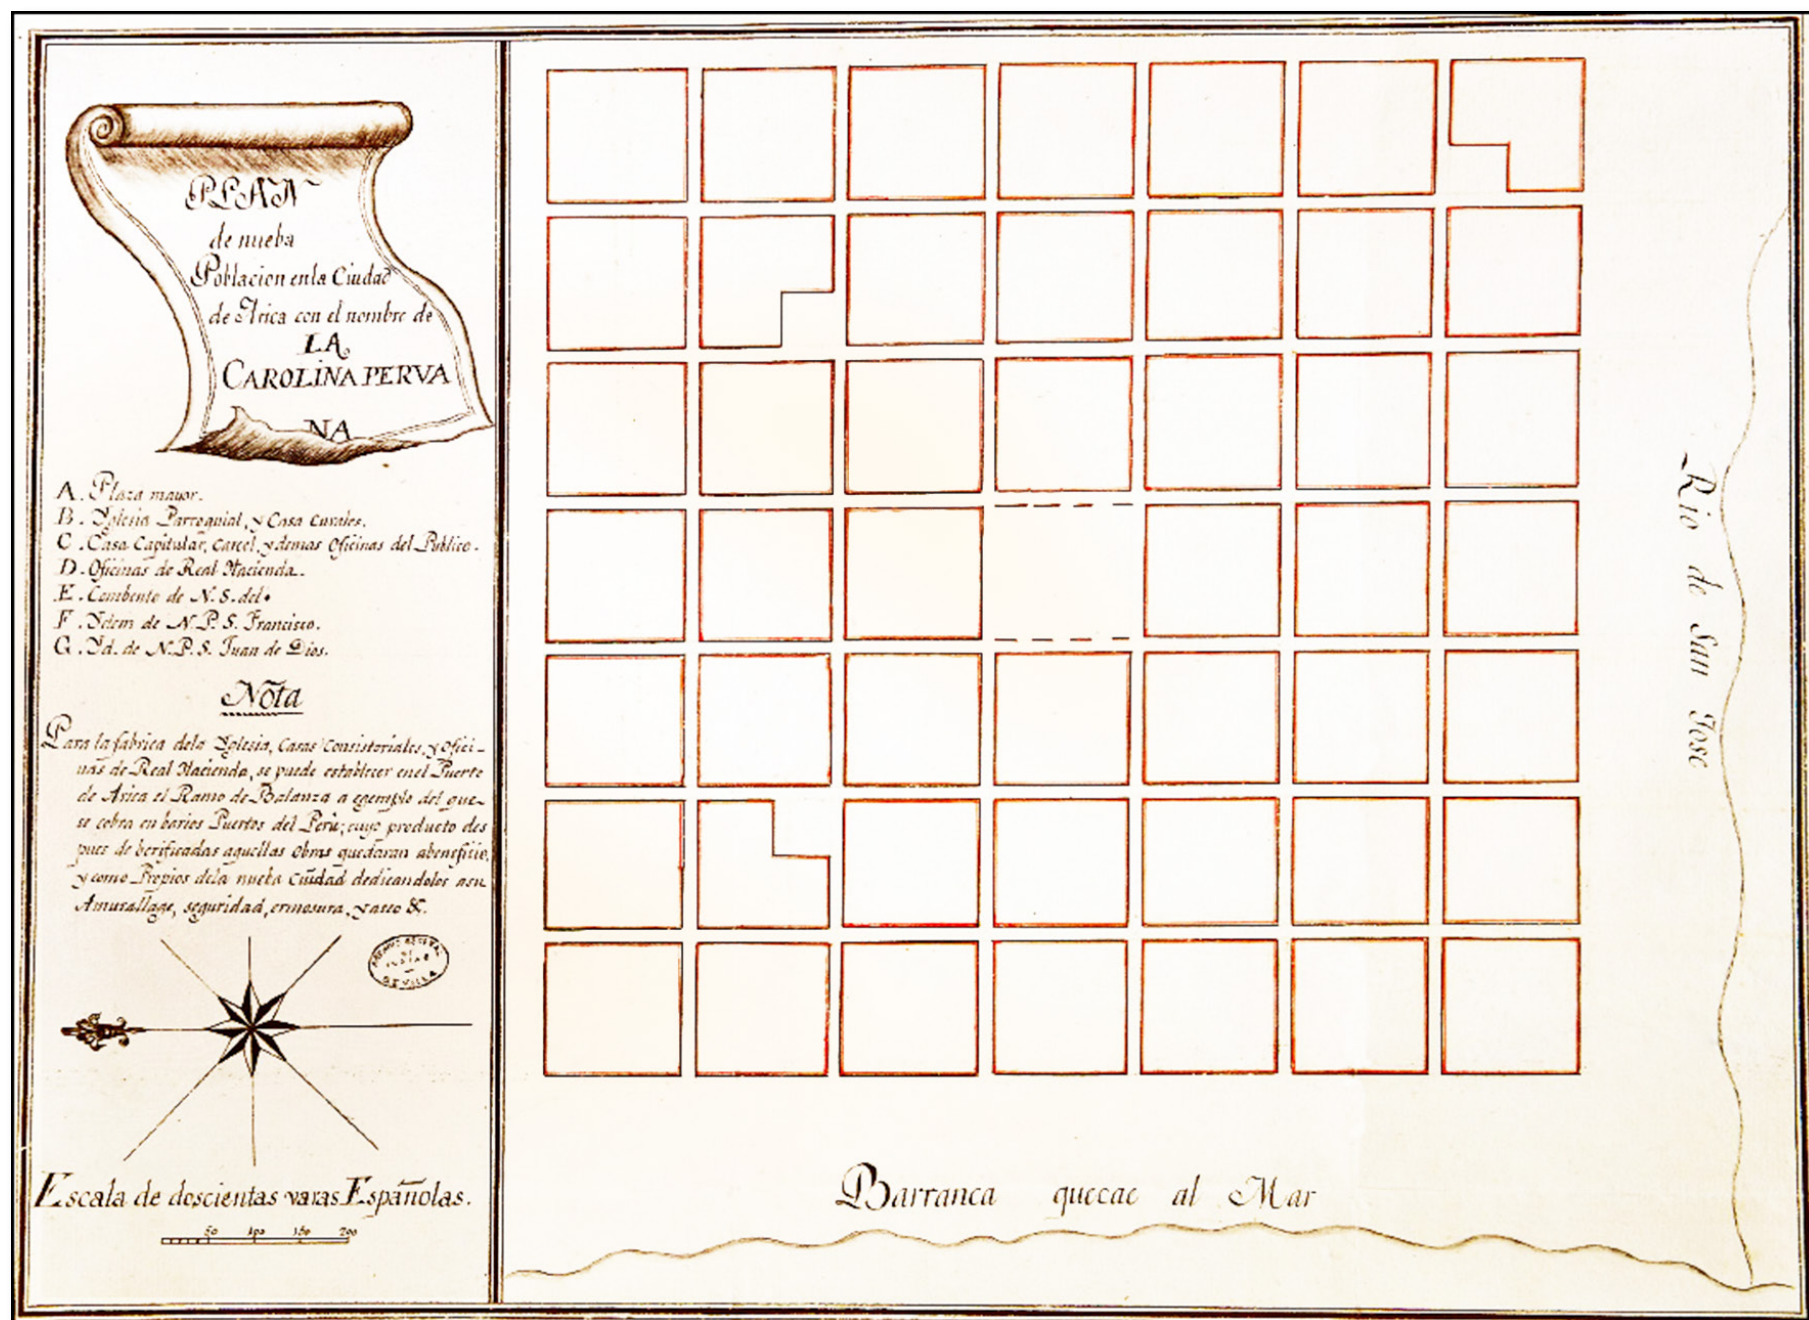 PLAN
de nueba
Poblacion enla Ciudad
de Arica con el nombre de
LA
CAROLINA PERVA
NA
A. Plaza mayor.
B. Yglesia Parroquial, y Casa Curales.
C. Casa Capitular, Carcel, y demas Oficinas del Publico.
D. Oficinas de Real Hacienda.
E. Combento de N. S. del
F. Ydem de N. P. S. Francisco.
G. Yd. de N. P. S. Juan de Dios.
Nota
Para la fabrica dela Yglesia, Casas Consistoriales, y Ofici-
nas de Real Hacienda, se puede establecer enel Puerto
de Arica el Ramo de Balanza a egemplo del que
se cobra en barios Puertos del Perù; cuyo producto des
pues de berificadas aquellas obras quedaran abeneficio,
y como Propios dela nueba Ciudad dedicandolos asu
Amurallage, seguridad, ermosura, y aseo &c.
ARCHIVO GENERAL
DE
INDIAS
SEVILLA
Escala de doscientas varas Españolas.
50 100 150 200
Rio de San Jose
Barranca quecae al Mar